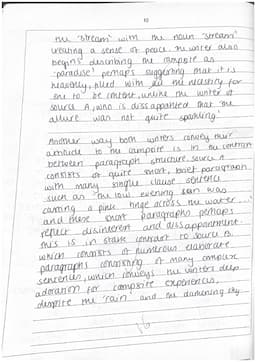 10
the "stream" with the noun "stream"
creating a sense of peace. The writer also
begins describing the campsite as
'paradise' perhaps suggesting that it is
heavenly, filled with all the necessity for
one to be content, unlike the writer of
source A, who is dissapointed that the
allure was not quite sparkling.
Another way both writers convey their
attitude to the campsite is in the contrast
between paragraph structure. source A
consists of quite short, brief paragraph
with many simple clause sentence
such as 'the low evening sun was
casting a pink tinge across the water...'
and these short paragraphs perhaps
reflect disinterest and dissappointment.
this is in stark contrast to source B.
which consists of numerous elaborate
paragraphs consisting of many complex
sentences, which conveys the writers deep
adoration for campsite experiences,
despite the 'rain' and the darkening sky.